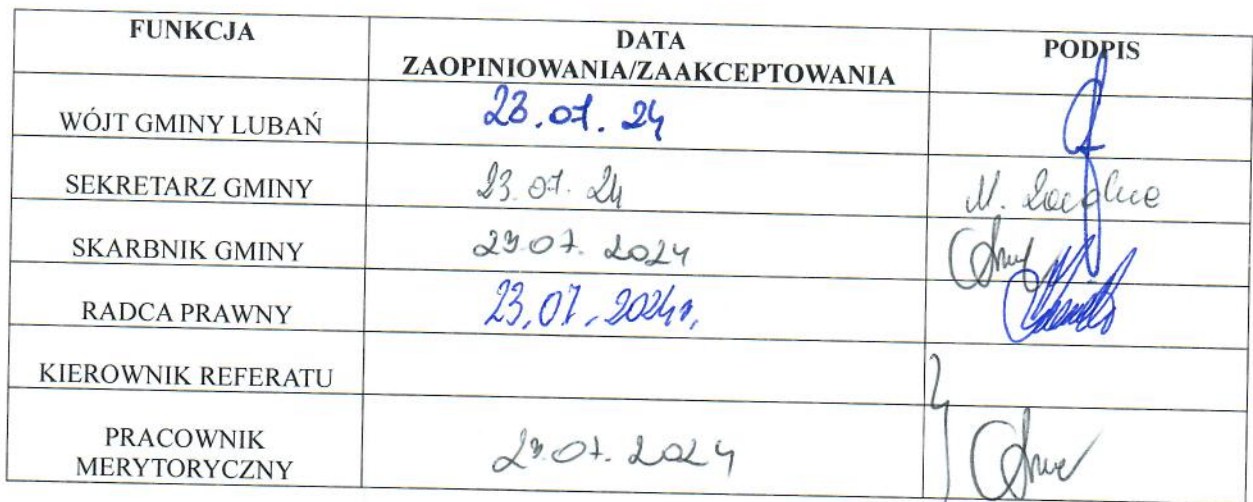 FUNKCJA
DATA
ZAOPINIOWANIA/ZAAKCEPTOWANIA
PODPIS
WÓJT GMINY LUBAŃ
23.07.24
SEKRETARZ GMINY
23.07.24
SKARBNIK GMINY
23.07.2024
RADCA PRAWNY
23.07.2024r.
KIEROWNIK REFERATU
PRACOWNIK
MERYTORYCZNY
23.07.2024